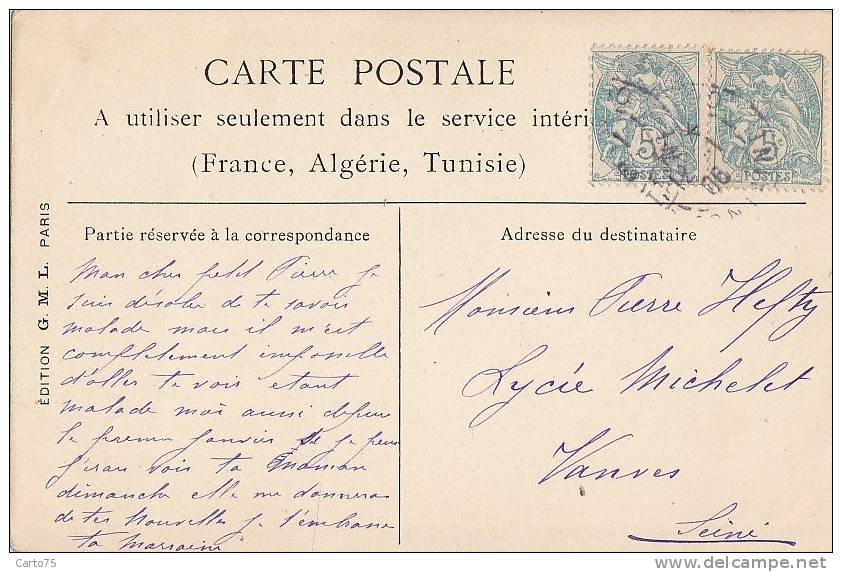 CARTE POSTALE
A utiliser seulement dans le service intéri
(France, Algérie, Tunisie)
5c
POSTES
5c
POSTES
06
ÉDITION G. M. L. PARIS
Partie réservée à la correspondance
Mon cher petit Pierre je
suis désolée de te savoir
malade mais il m'est
completement impossible
d'aller te voir etant
malade moi aussi depuis
le premier janvier si je peux
j'irai voir ta maman
dimanche elle me donnera
de tes nouvelles je t'embrasse
ta marraine
Adresse du destinataire
Monsieur Pierre Hefty
Lycée Michelet
Vanves
Seine
Carto75
www.delcampe.net